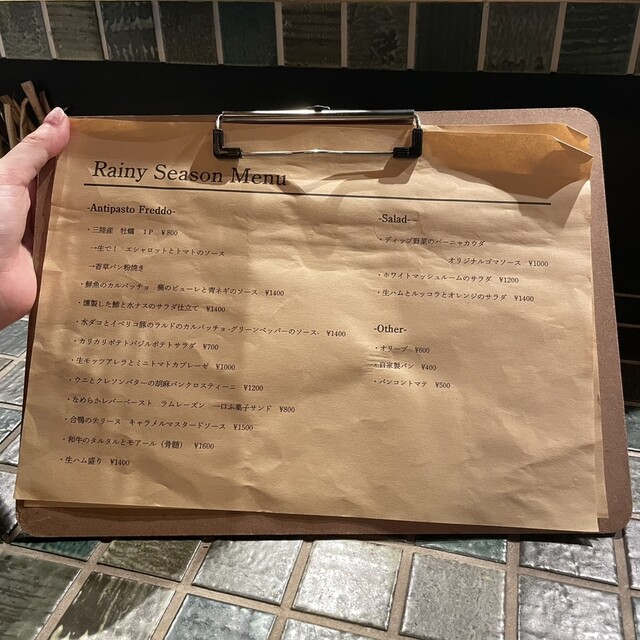 Rainy Season Menu
-Antipasto Freddo-
・三陸産 牡蠣 1P ¥800
→生で! エシャロットとトマトのソース
→香草パン粉焼き
・鮮魚のカルパッチョ 蕪のピューレと青ネギのソース ¥1400
・燻製した鯵と水ナスのサラダ仕立て ¥1400
・水ダコとイベリコ豚のラルドのカルパッチョ-グリーンペッパーのソース- ¥1400
・カリカリポテトバジルポテトサラダ ¥700
・生モッツアレラとミニトマトカプレーゼ ¥1000
・ウニとクレソンバターの胡麻パンクロスティーニ ¥1200
・なめらかレバーペースト ラムレーズン 一口ふ菓子サンド ¥800
・合鴨のテリーヌ キャラメルマスタードソース ¥1500
・和牛のタルタルとモアール(骨髄) ¥1600
・生ハム盛り ¥1400
-Salad-
・ディップ野菜のバーニャカウダ
オリジナルゴマソース ¥1000
・ホワイトマッシュルームのサラダ ¥1200
・生ハムとルッコラとオレンジのサラダ ¥1400
-Other-
・オリーブ ¥600
・自家製パン ¥400
・パンコントマテ ¥500